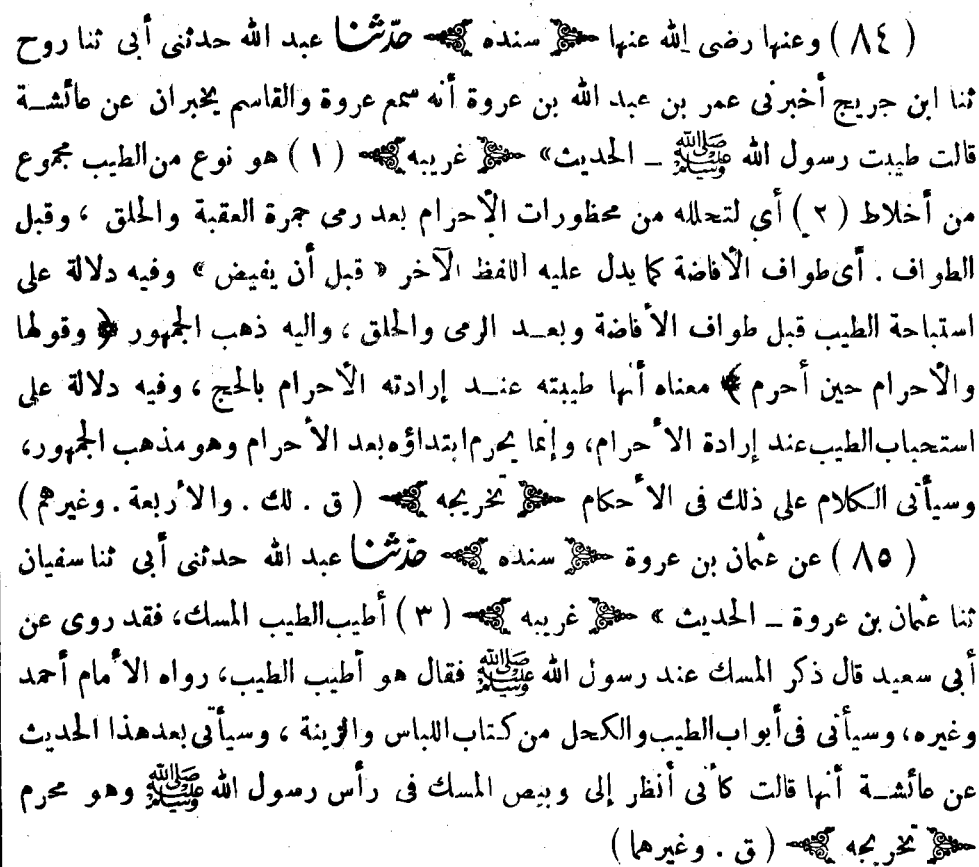 ( ٨٤ ) وعنها رضى الله عنها ﴿ سنده ﴾ حدّثنا عبد الله حدثنى أبى ثنا روح
ثنا ابن جريج أخبرنى عمر بن عبد الله بن عروة أنه سمع عروة والقاسم يخبران عن عائشة
قالت طيبت رسول الله ﷺ ــ الحديث» ﴿ غريبه ﴾ ( ١ ) هو نوع من الطيب مجموع
من أخلاط ( ٢ ) أي لتحلله من محظورات الأحرام بعد رمى جمرة العقبة والحلق ، وقبل
الطواف . أى طواف الأفاضة كما يدل عليه اللفظ الآخر « قبل أن يفيض » وفيه دلالة على
استباحة الطيب قبل طواف الأفاضة وبعد الرمى والحلق ، واليه ذهب الجمهور ﴿ وقولها
والأحرام حين أحرم ﴾ معناه أنها طيبته عند إرادته الأحرام بالحج ، وفيه دلالة على
استحباب الطيب عند إرادة الأحرام، وإنما يحرم ابتداؤه بعد الأحرام وهو مذهب الجمهور،
وسيأتى الكلام على ذلك فى الأحكام ﴿ تخريجه ﴾ ( ق . لك . والأربعة . وغيرهم )
( ٨٥ ) عن عثمان بن عروة ﴿ سنده ﴾ حدّثنا عبد الله حدثنى أبى ثنا سفيان
ثنا عثمان بن عروة ــ الحديث » ﴿ غريبه ﴾ ( ٣ ) أطيب الطيب المسك، فقد روى عن
أبى سعيد قال ذكر المسك عند رسول الله ﷺ فقال هو أطيب الطيب، رواه الأمام أحمد
وغيره، وسيأتى فى أبواب الطيب والكحل من كتاب اللباس والزينة ، وسيأتى بعد هذا الحديث
عن عائشة أنها قالت كأنى أنظر إلى وبيص المسك فى رأس رسول الله ﷺ وهو محرم
﴿ تخريجه ﴾ ( ق . وغيرهما )